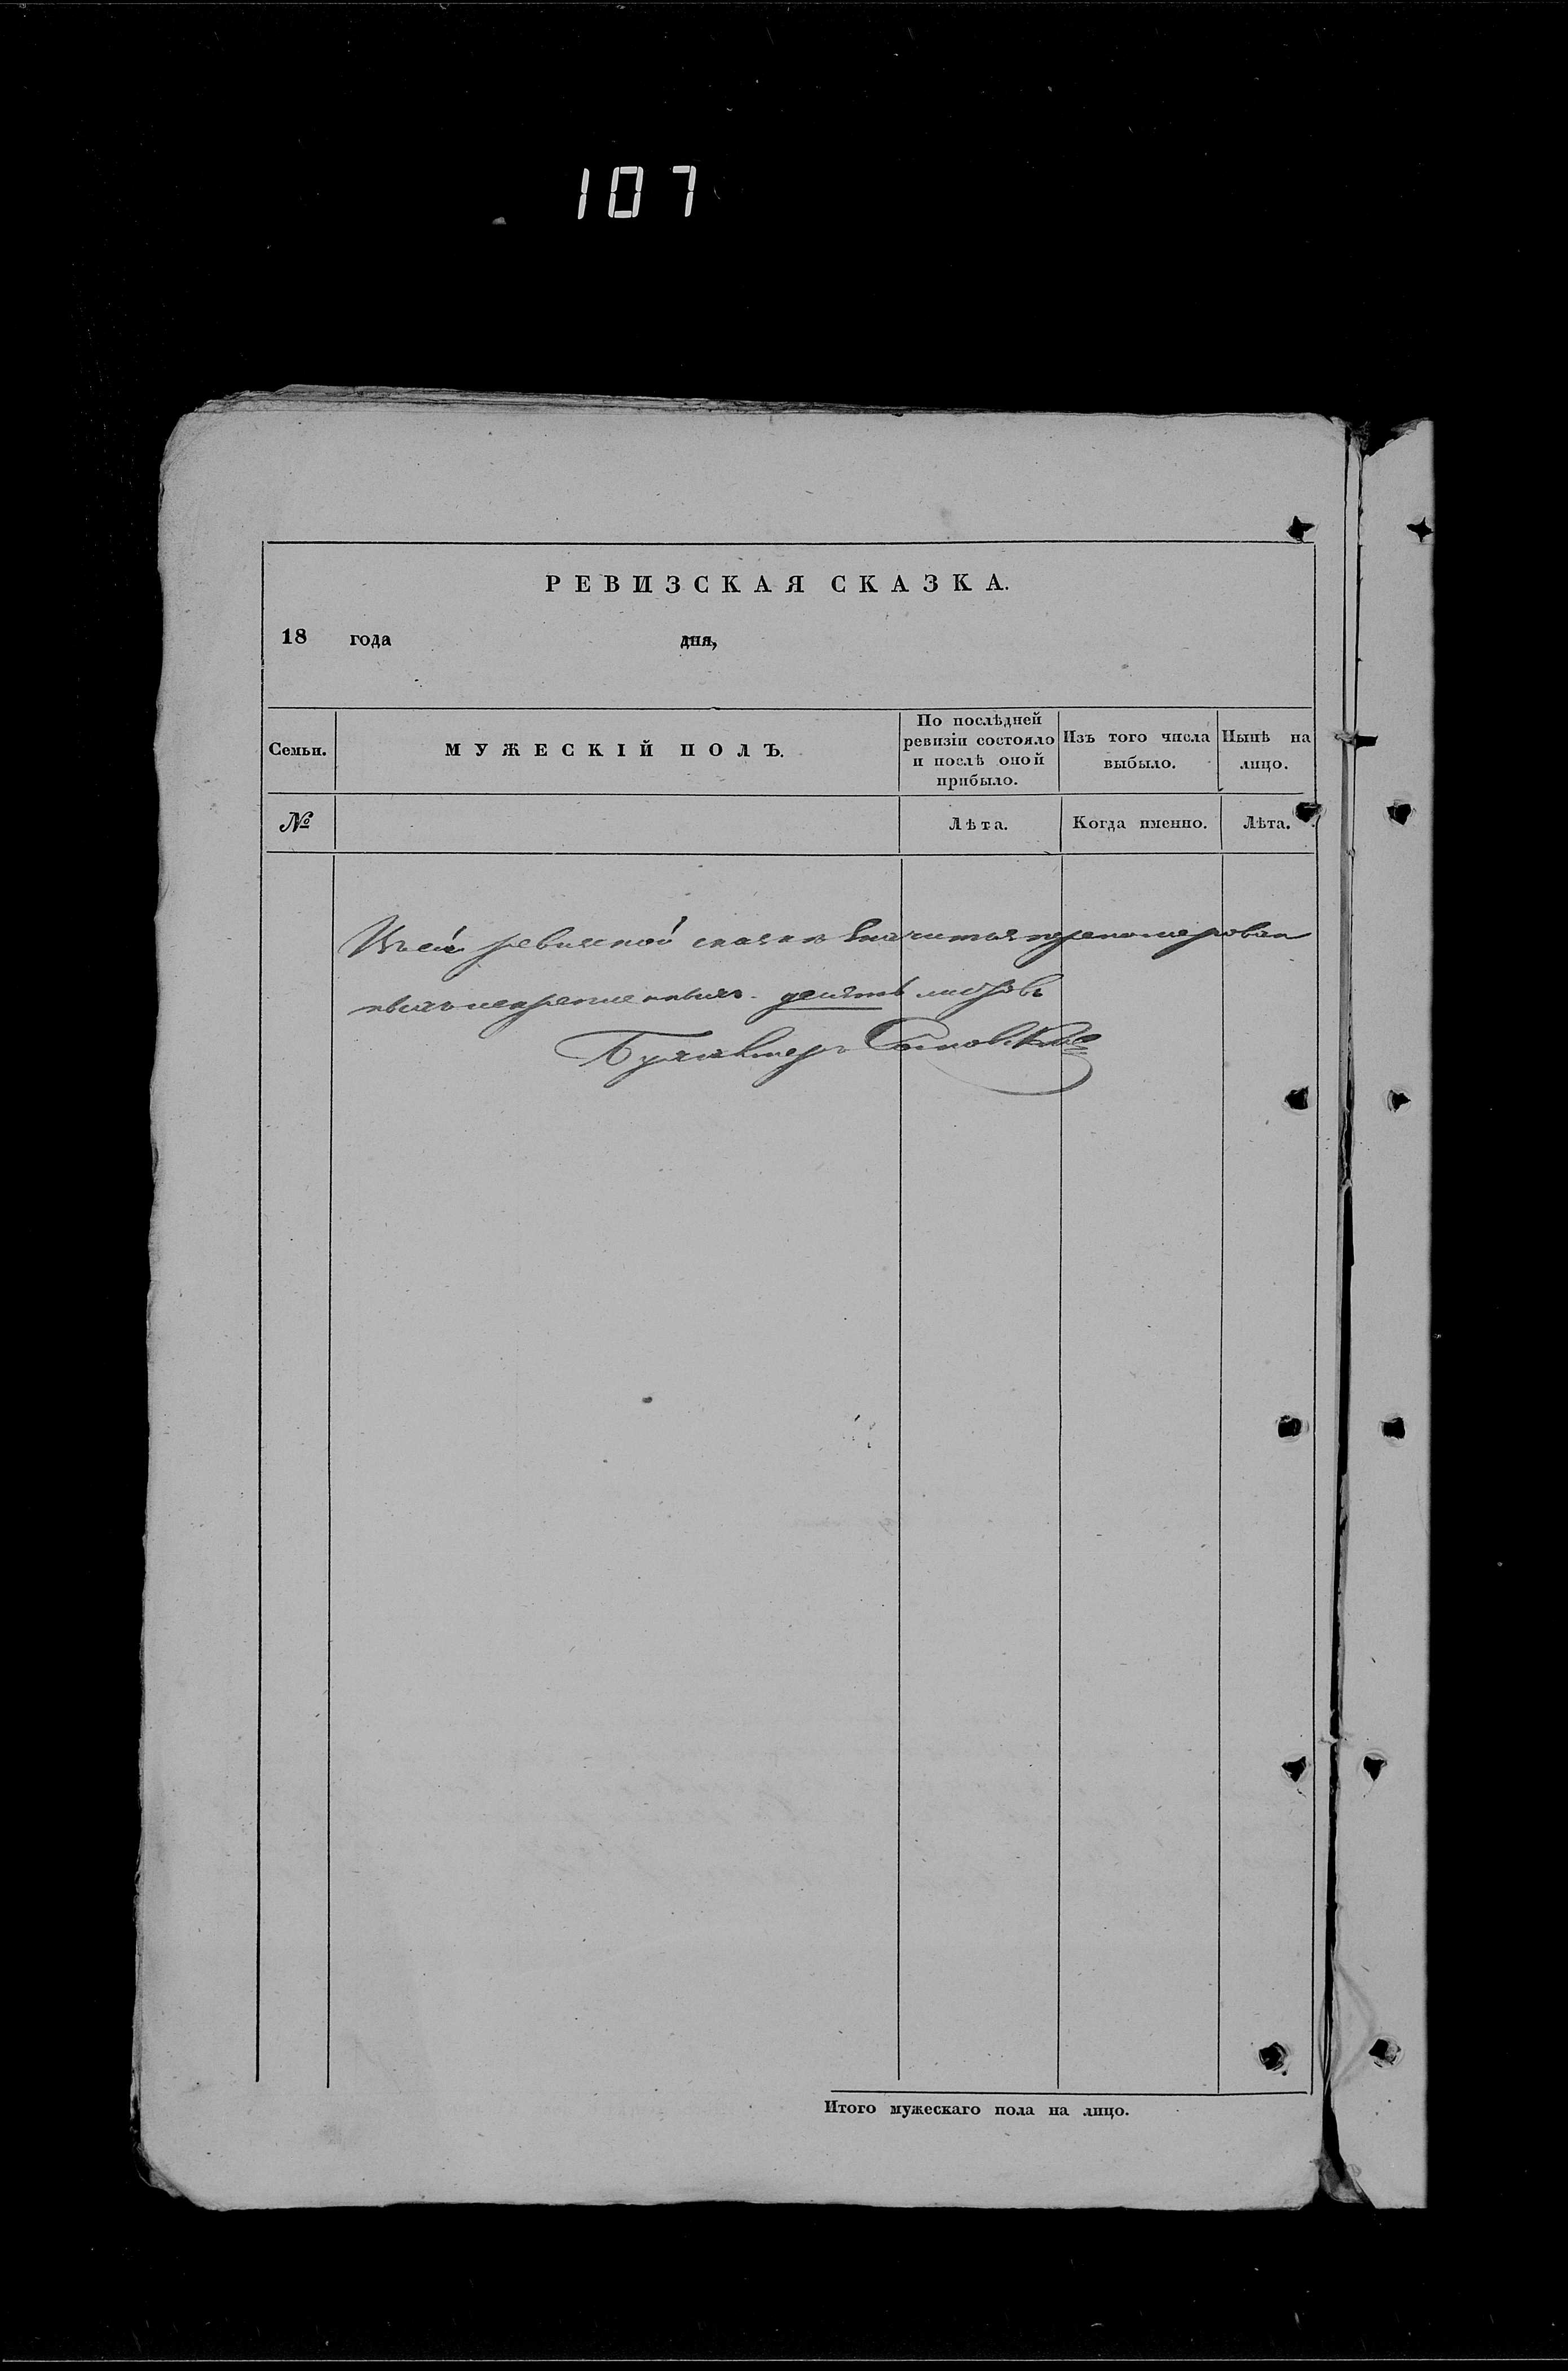 107
РЕВИЗСКАЯ СКАЗКА.
18 года дня,
Семьи.
МУЖЕСКІЙ ПОЛЪ.
По послѣдней
ревизіи состояло
и послѣ оной
прибыло.
Изъ того числа
выбыло.
Нынѣ на
лицо.
№
Лѣта.
Когда именно.
Лѣта.
ревизской сказки значится пренумерован
ныхъ десять листовъ
Бухгалтеръ
Итого мужескаго пола на лицо.